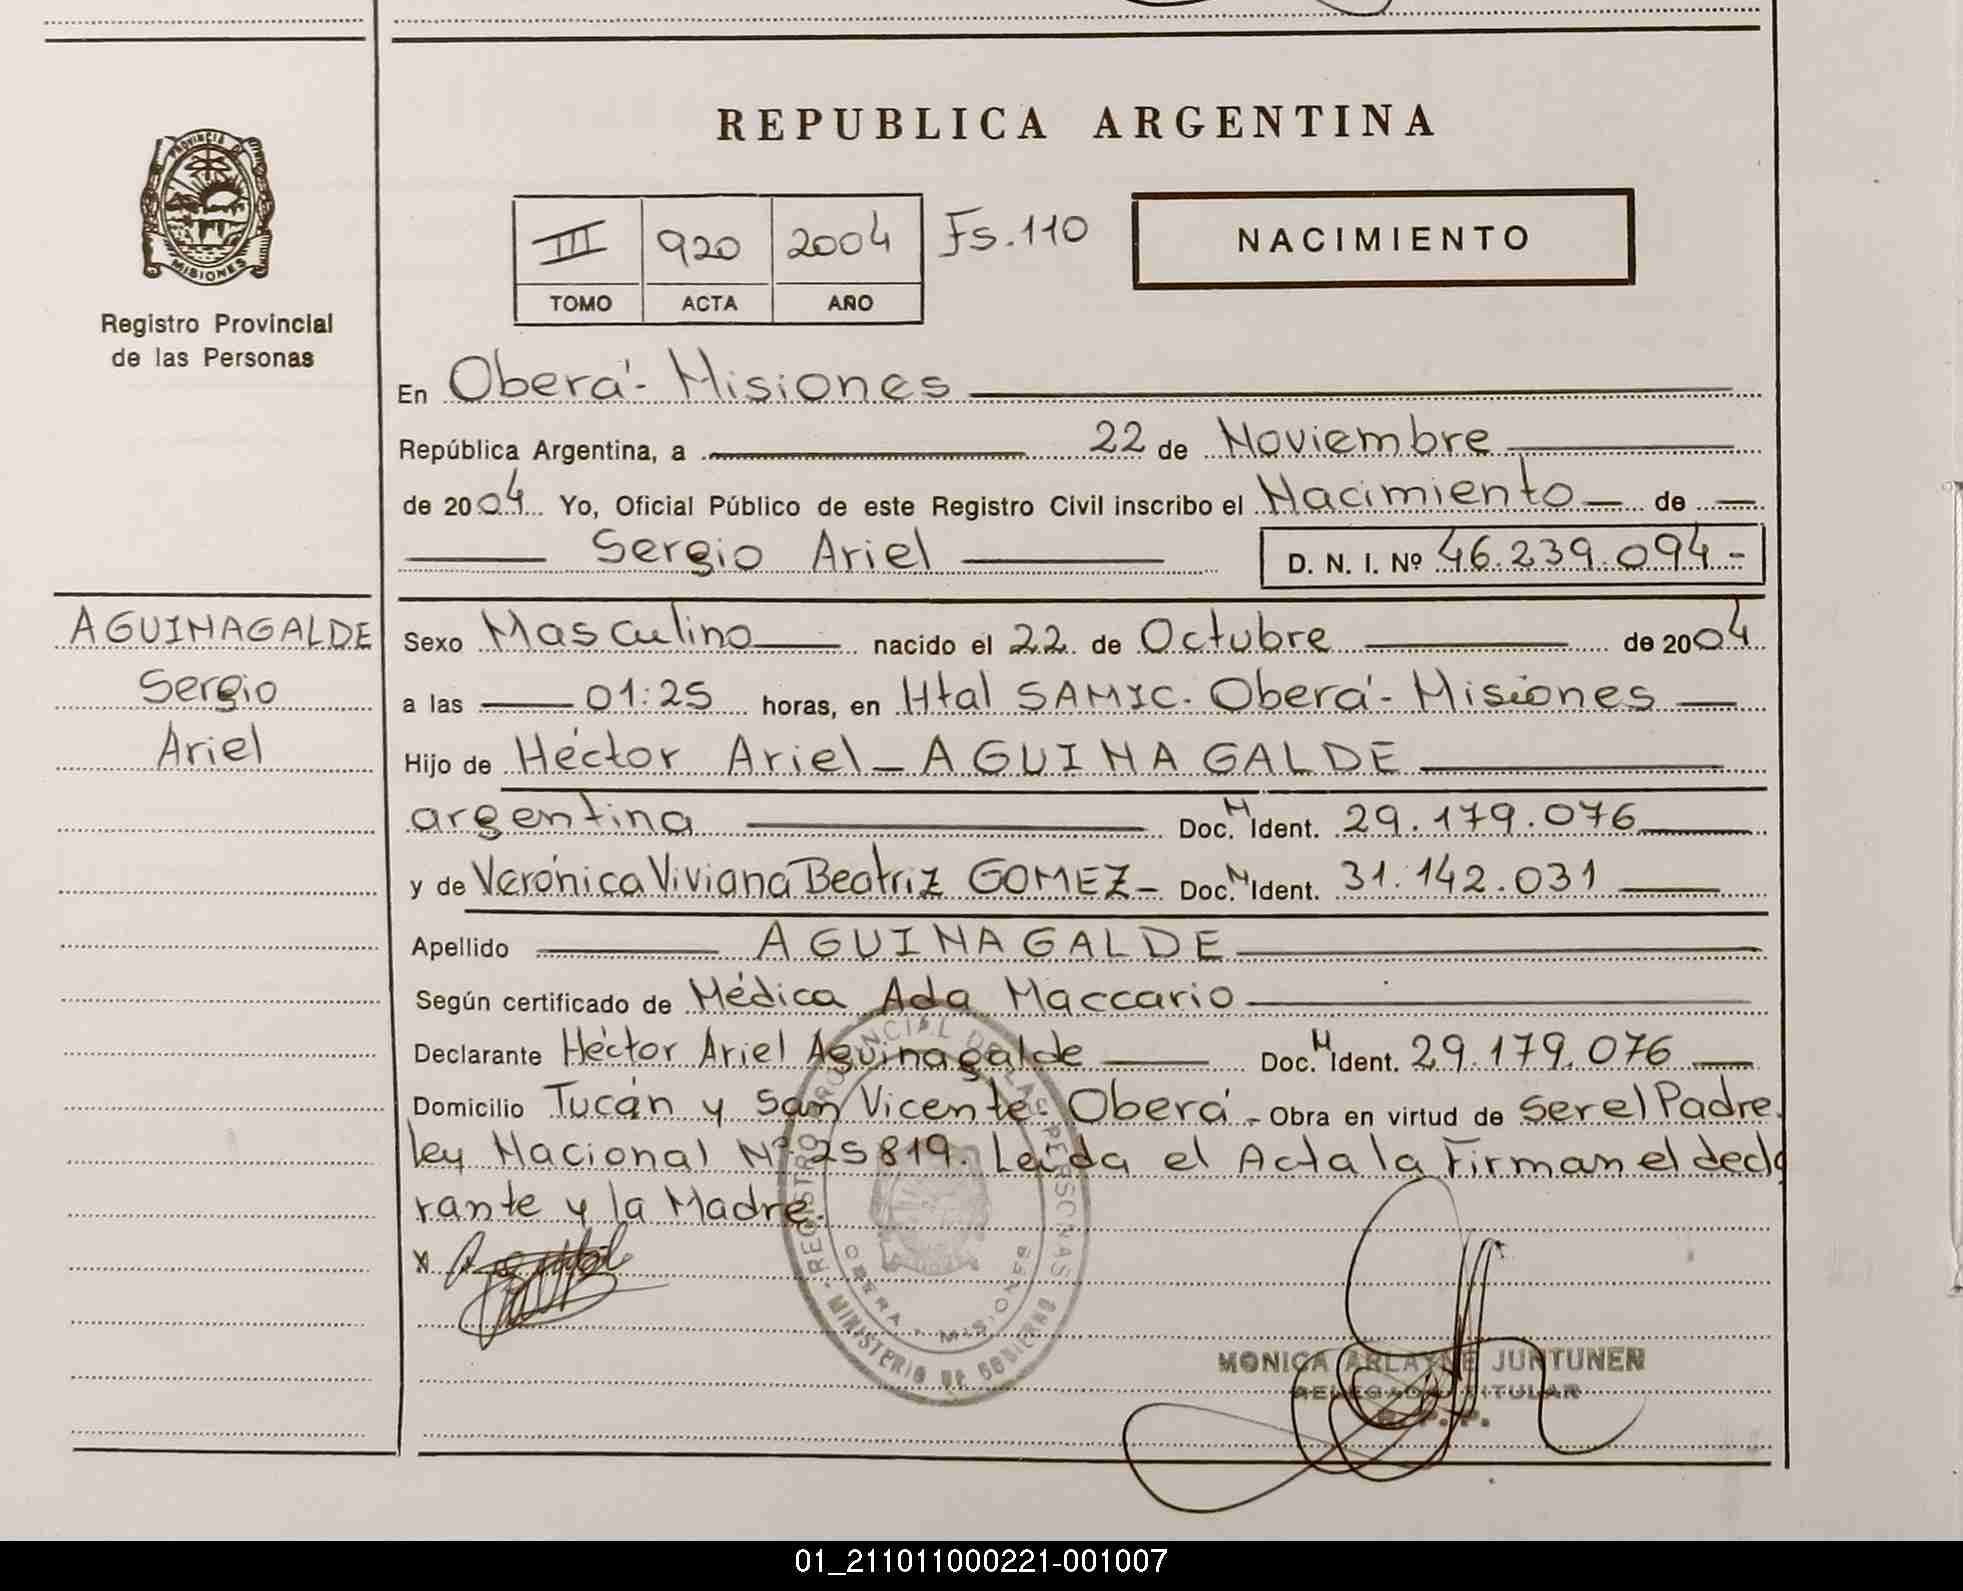 PROVINCIA DE
MISIONES
Registro Provincial
de las Personas
AGUINAGALDE
Sergio
Ariel
REPUBLICA ARGENTINA
III 920 2004 Fs. 110
TOMO ACTA AÑO
NACIMIENTO
En Oberá - Misiones
República Argentina, a 22 de Noviembre
de 2004 Yo, Oficial Público de este Registro Civil inscribo el Nacimiento de
Sergio Ariel D. N. I. Nº 46.239.094.-
Sexo Masculino nacido el 22 de Octubre de 2004
a las 01:25 horas, en Htal SAMIC. Oberá - Misiones
Hijo de Héctor Ariel - AGUINAGALDE
argentina Doc. N Ident. 29.179.076
y de Verónica Viviana Beatriz GOMEZ - Doc. N Ident. 31.142.031
Apellido AGUINAGALDE
Según certificado de Médica Ada Maccario
Declarante Héctor Ariel Aguinagalde Doc. N Ident. 29.179.076
Domicilio Tucán y San Vicente - Oberá - Obra en virtud de ser el Padre.
ley Nacional Nº 25819. Leida el Acta la Firman el decla
rante y la Madre.
x
REGISTRO PROVINCIAL DE LAS PERSONAS
OBERA - MISIONES
MINISTERIO DE GOBIERNO
MONICA ARLAYNE JUNTUNEN
DELEGADA TITULAR
R. P. P.
01_211011000221-001007